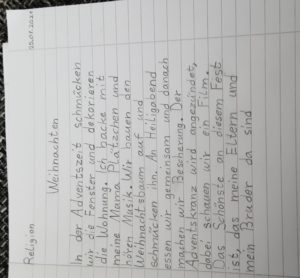 05.01.2021
Religion
Weihnachten
In der Adventszeit schmücken
wir die Fenster und dekorieren
die Wohnung. Ich backe mit
meine Mama Plätzchen und
hören Musik. Wir bauen den
Weihnachtsbaum auf und
schmücken ihn. An Heiligabend
essen wir gemeinsam und danach
machen wir Bescherung. Der
Adventskranz wird angezündet,
dabei schauen wir ein Film.
Das Schönste an diesem Fest
ist, das meine Eltern und
mein Bruder da sind